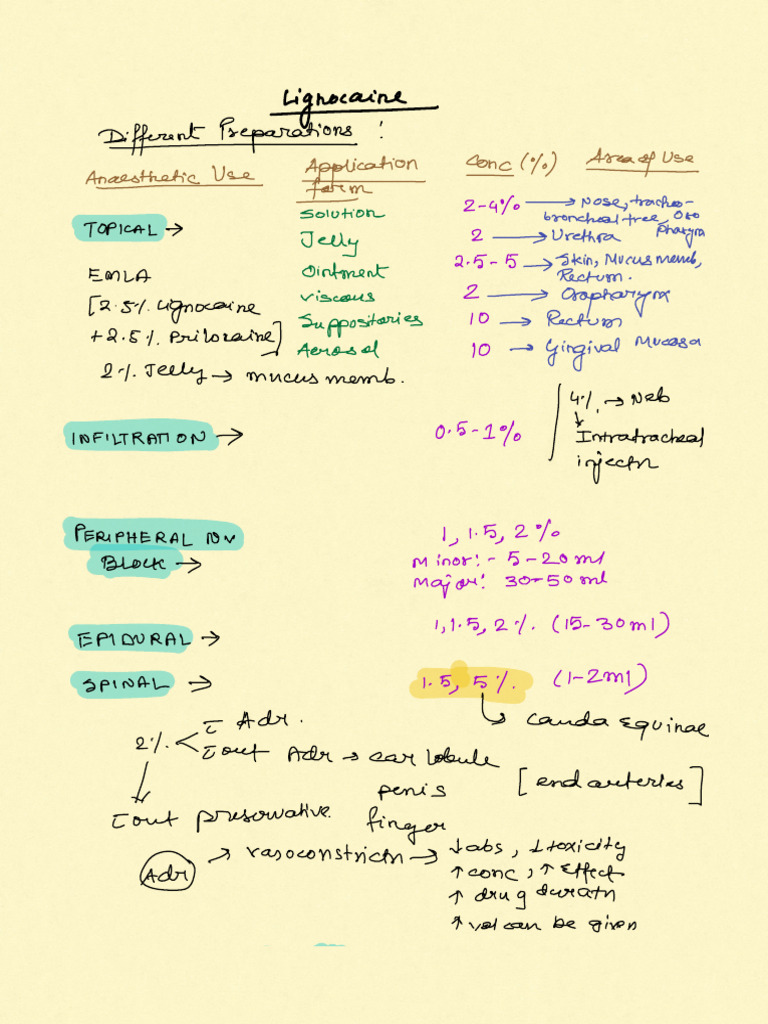 Lignocaine
Different Preparations :
Anaesthetic Use Application form Conc (%) Area of Use
TOPICAL → Solution 2-4% → Nose, tracheo-bronchealtree, Oro pharynx
Jelly 2 → Urethra
EMLA Ointment 2.5-5 → Skin, Mucus memb, Rectum.
[2.5% Lignocaine viscous 2 → Oropharynx
+ 2.5% Prilocaine] Suppositories 10 → Rectum
Aerosol 10 → Gingival Mucosa
2% Jelly → mucus memb.
4% → Neb
↓
Intratracheal
injectn
INFILTRATION → 0.5-1%
PERIPHERAL NV 1, 1.5, 2%
BLOCK → Minor:- 5-20ml
Major: 30-50ml
EPIDURAL → 1, 1.5, 2% (15-30ml)
SPINAL → 1.5, 5%. (1-2ml)
↳ Cauda equinae
2% < c̄ Adr.
c̄out Adr → ear lobule
penis [end arteries]
finger
↓
c̄out preservative
Adr → vasoconstrictn → ↓abs, ↓toxicity
↑ conc, ↑ Effect
↑ drug duratn
↑ vol can be given